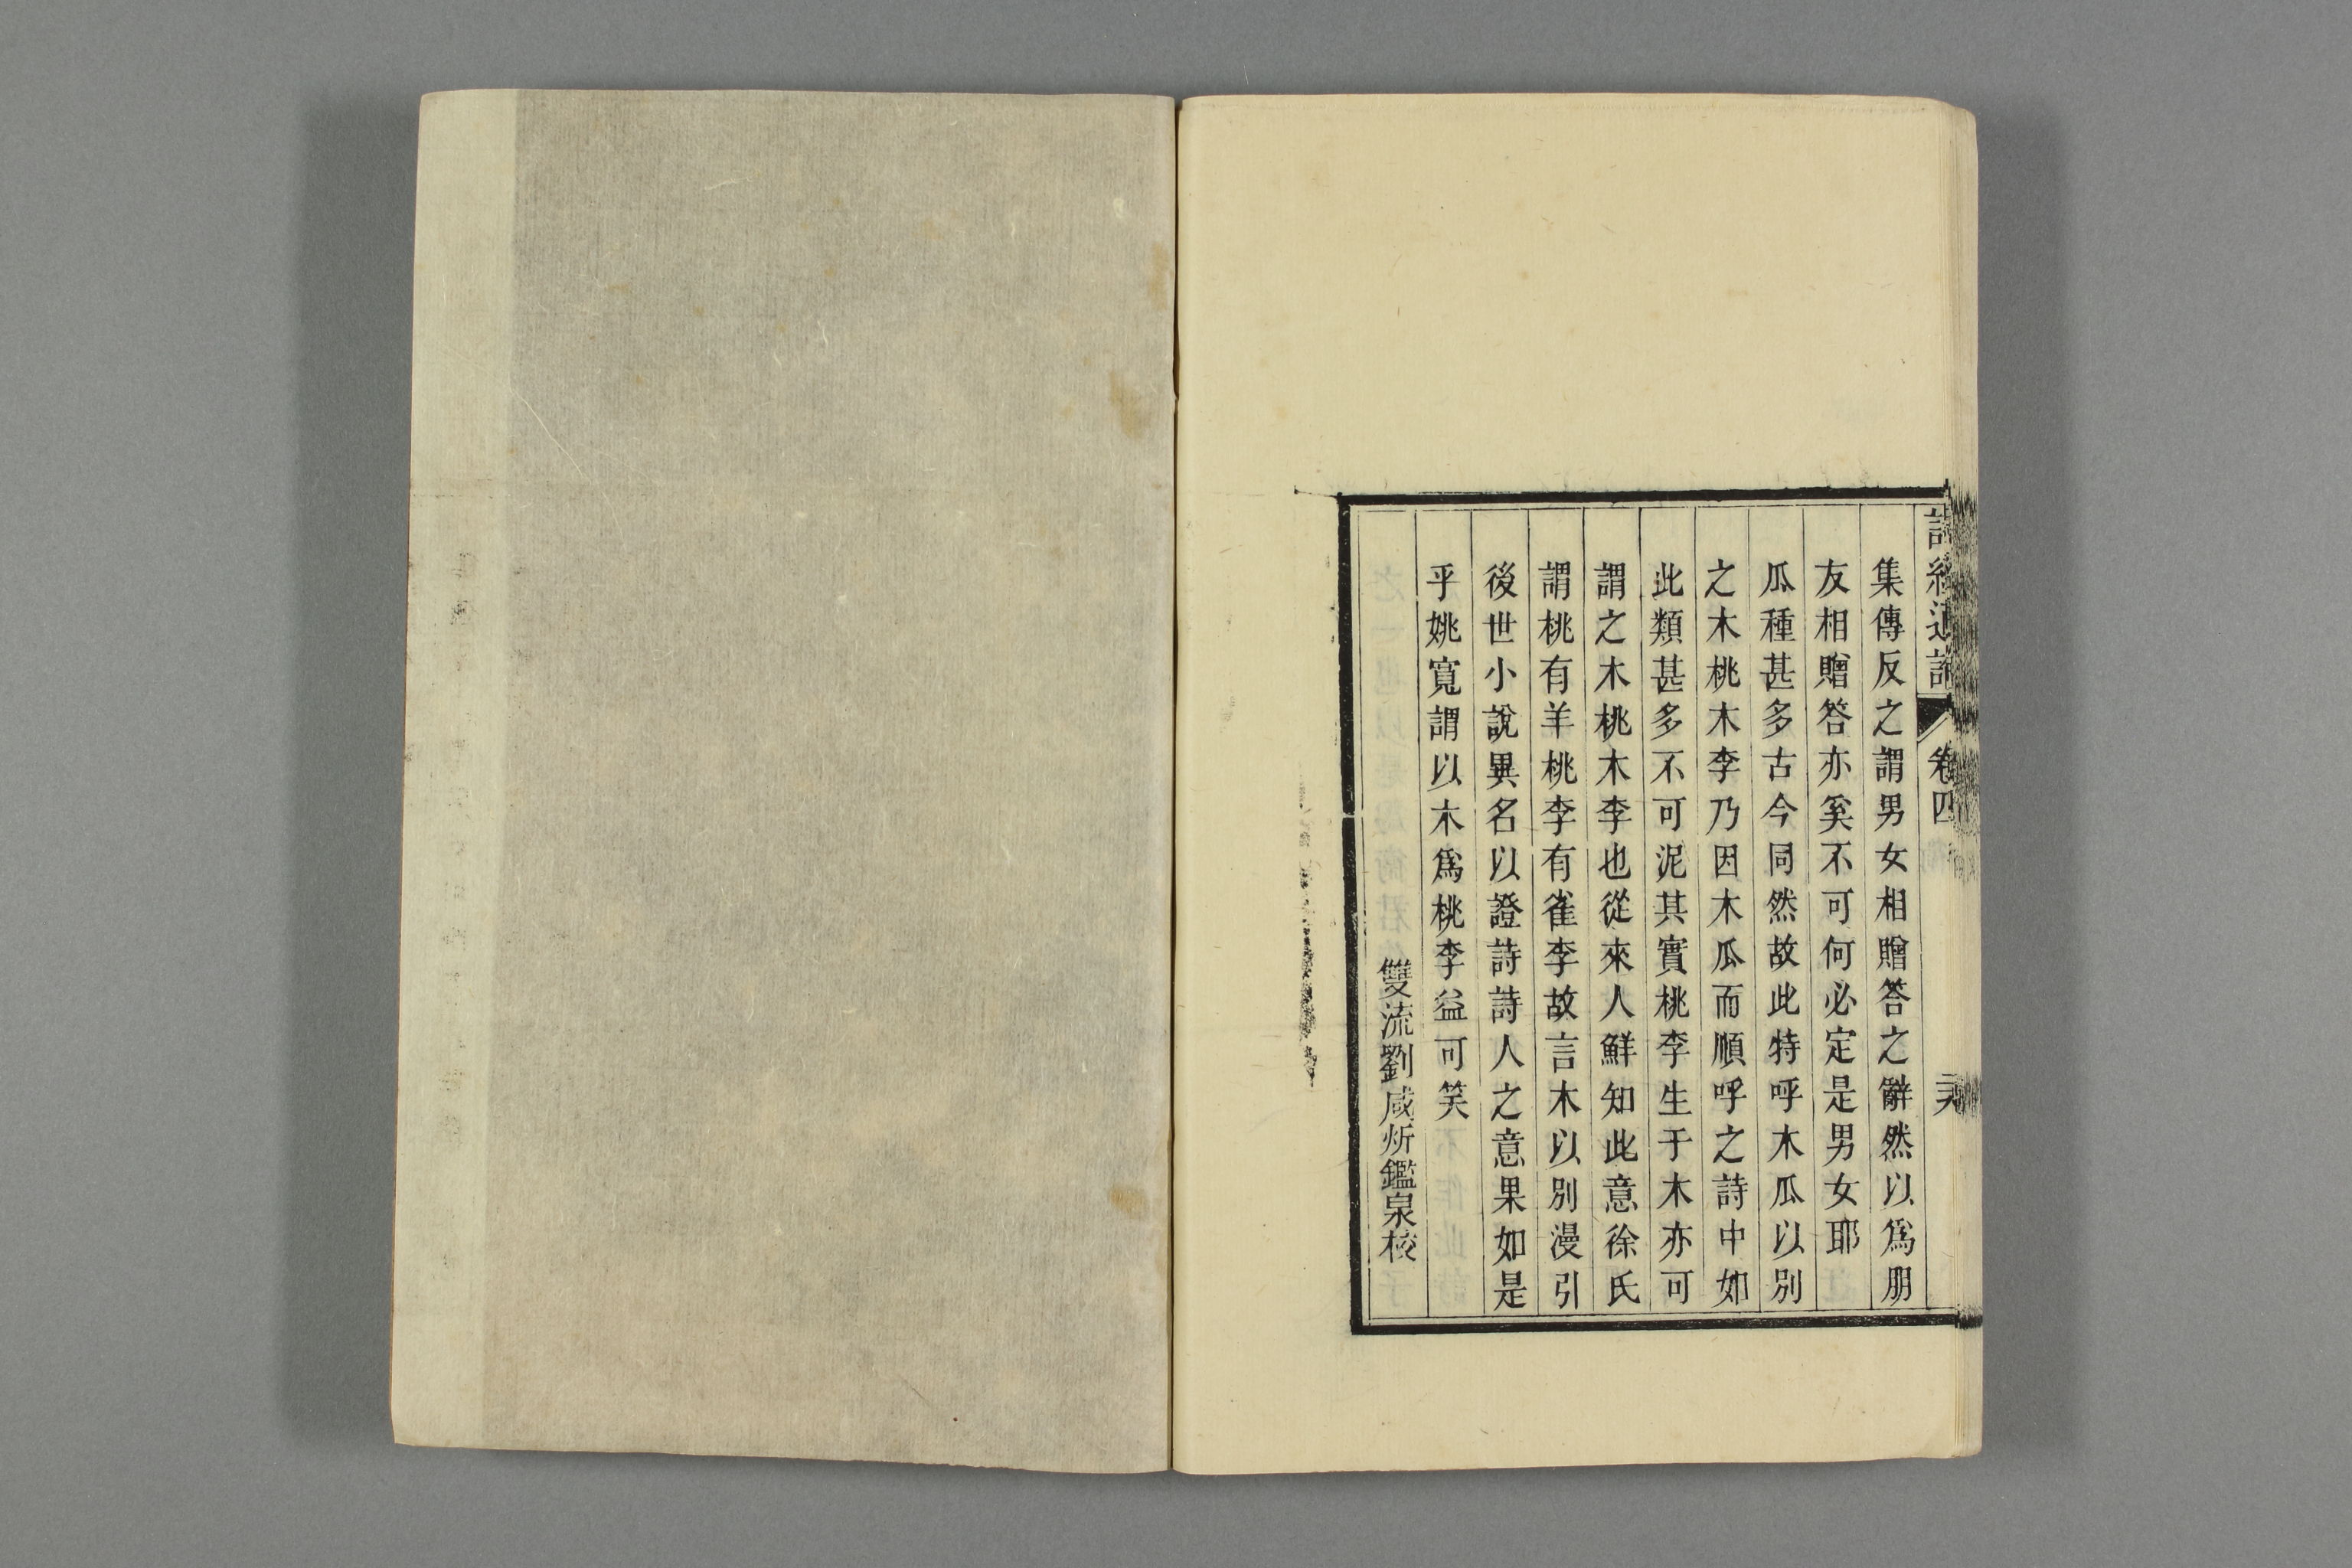 詩經通論
卷四
集傳反之謂男女相贈答之辭然以爲朋
友相贈答亦奚不可何必定是男女耶
瓜種甚多古今同然故此特呼木瓜以別
之木桃木李乃因木瓜而順呼之詩中如
此類甚多不可泥其實桃李生于木亦可
謂之木桃木李也從來人鮮知此意徐氏
謂桃有羊桃李有雀李故言木以別漫引
後世小說異名以證詩詩人之意果如是
乎姚寬謂以木爲桃李益可笑
雙流劉咸炘鑑泉校